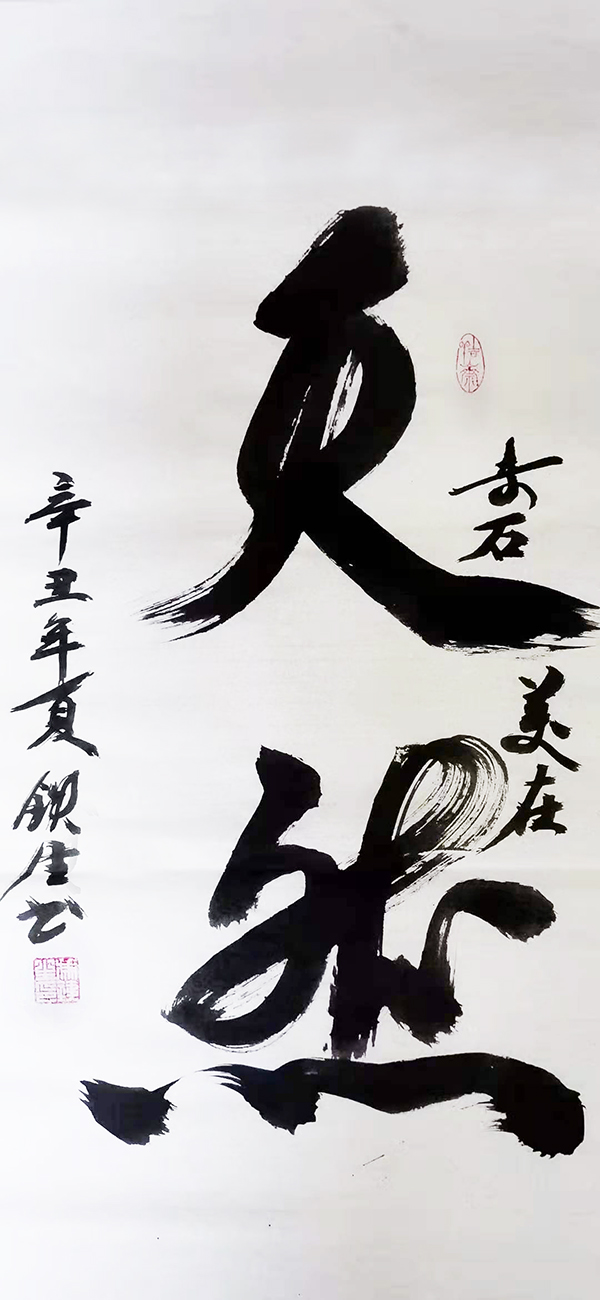 奇石美在
天然
辛丑年夏 生书